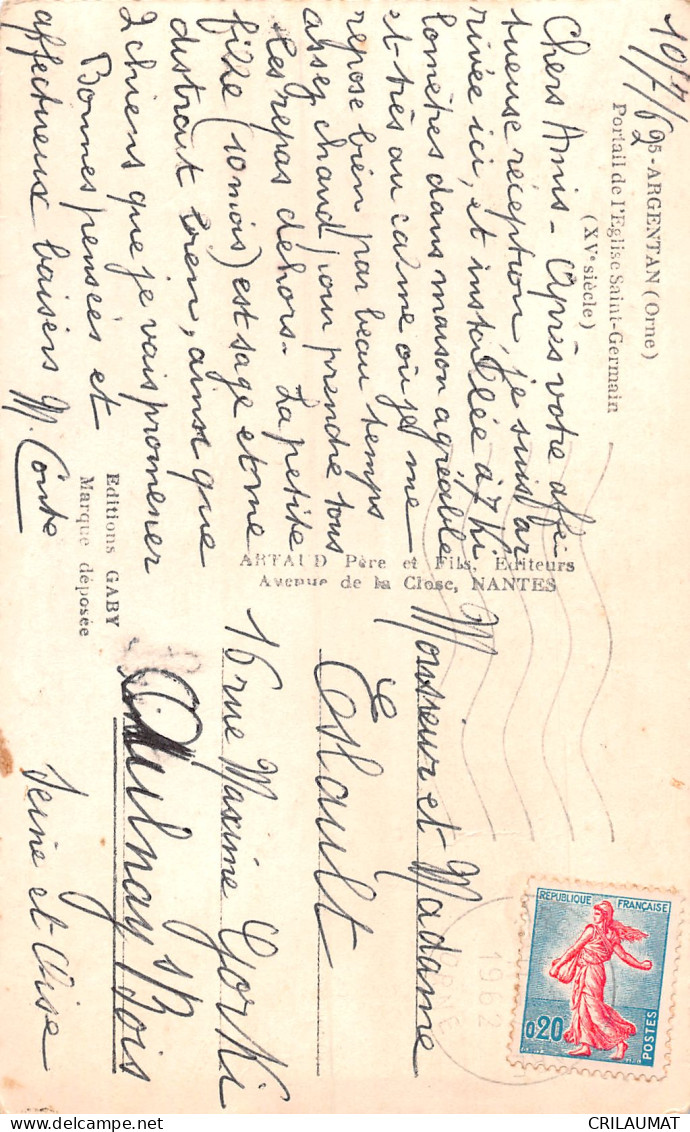 10/7/62
95-ARGENTAN (Orne)
Portail de l'Eglise Saint-Germain
(XVe siècle)
Chers Amis - Après votre affec
tueuse réception, je suis ar
rivée ici, et installée à 7 ki
lomètres dans maison agréable
et très au calme où je me
repose bien par beau temps
assez chaud pour prendre tous
les repas dehors - La petite
fille (10 mois) est sage et me
distrait bien, ainsi que
2 chiens que je vais promener
Bonnes pensées et
affectueux baisers M. Conte
Editions GABY
Marque déposée
ARTAUD Père et Fils, Editeurs
Avenue de la Close, NANTES
Monsieur et Madame
Esnault
16 rue Maxime Gorki
Aulnay s/Bois
Seine et Oise
1962
ORNE
RÉPUBLIQUE FRANÇAISE
0,20
POSTES
CRILAUMAT